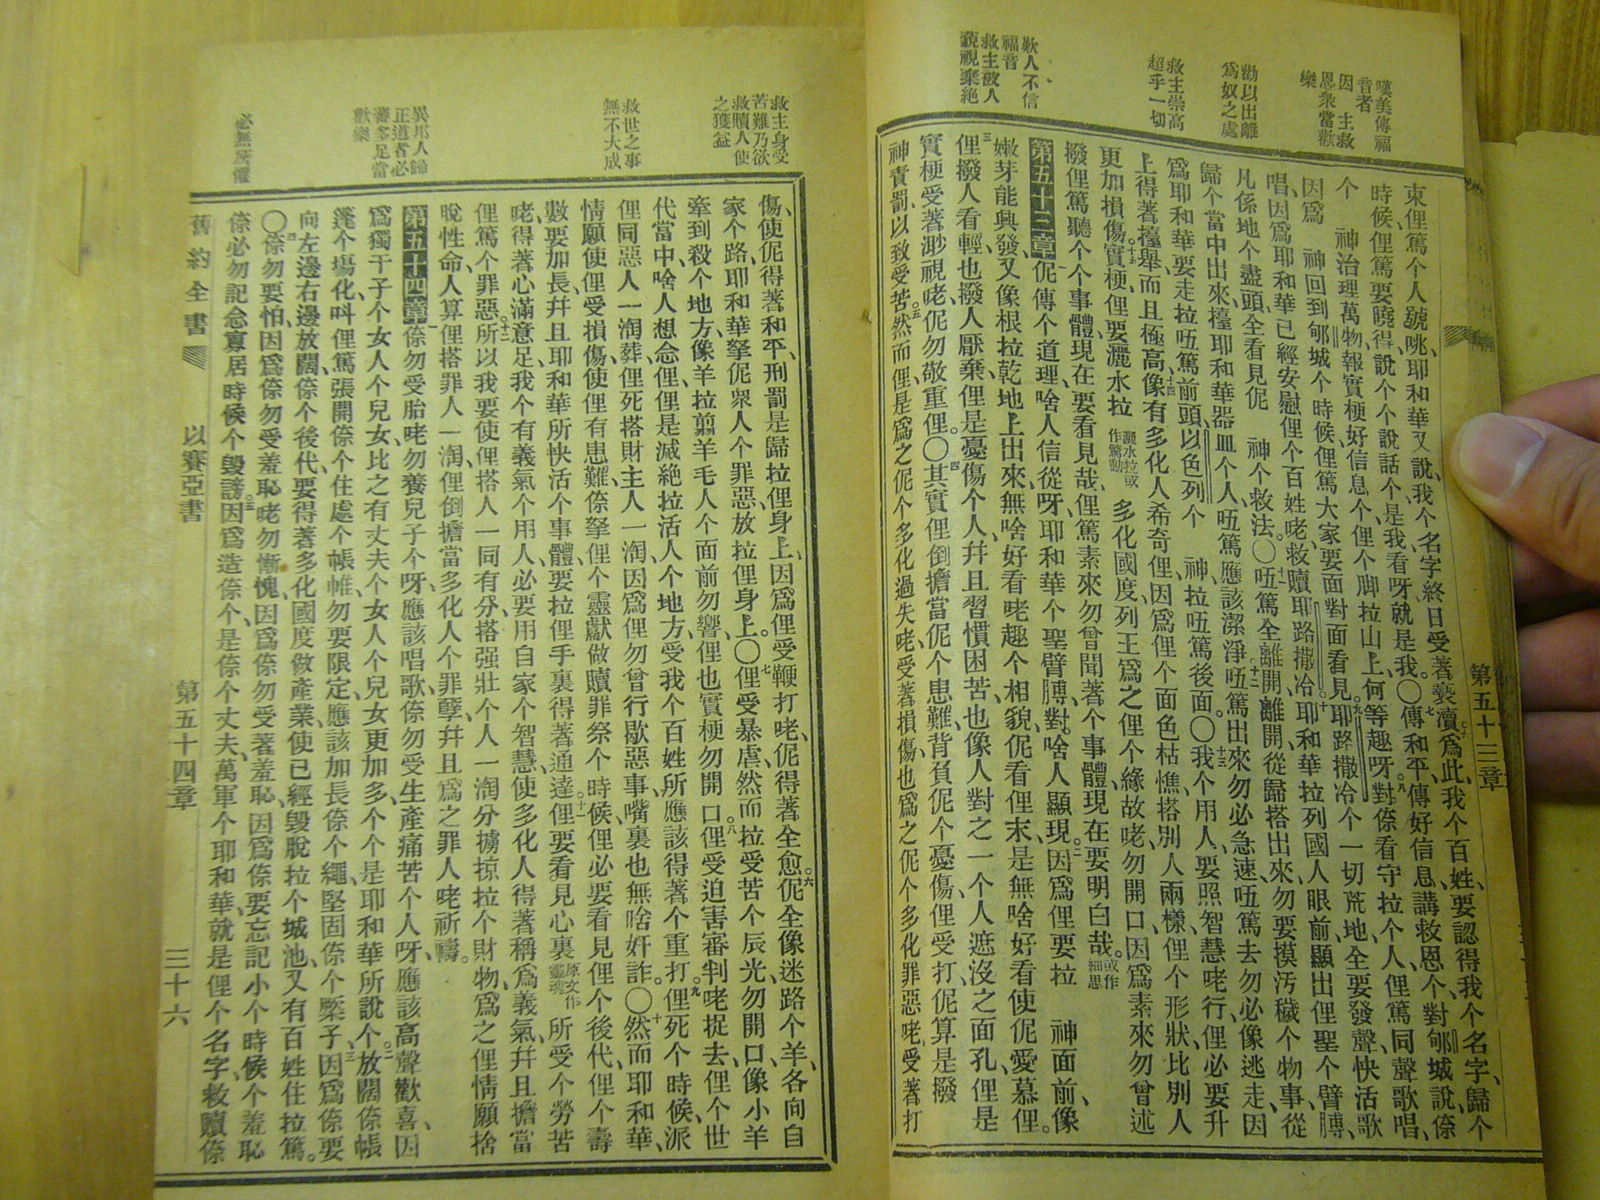 嘆美傳福
音者
因　主救
恩衆當歡
樂
勸以出離
爲奴之處
救主崇高
超乎一切
歎人不信
福音
救主被人
藐視棄絕
第五十三章
東俚篤个人號咷、耶和華又說、我个名字終日受著褻瀆、爲此、我个百姓、要認得我个名字、歸个
時候、俚篤要曉得、說个个說話个、是我、看呀、就是我。〇傳和平、傳好信息、講救恩个、對郇城說、倷
个　神治理萬物、報實梗好信息个、俚个脚拉山上、何等趣呀、對倷看守拉个人、俚篤同聲歌唱、
因爲　神回到郇城个時候、俚篤大家要面對面看見、耶路撒冷个一切荒地、全要發聲快活歌
唱、因爲耶和華已經安慰俚个百姓咾、救贖耶路撒冷、耶和華拉列國人眼前、顯出俚聖个臂膊、
凡係地个盡頭、全看見伲　神个救法。〇呒篤全離開、離開、從歸搭出來、勿要摸汚穢个物事、從
歸个當中出來、擡耶和華器皿个人、呒篤應該潔淨、呒篤出來、勿必急速、呒篤去、勿必像逃走、因
爲耶和華要走拉呒篤前頭、以色列个　神、拉呒篤後面。〇我个用人、要照智慧咾行、俚必要升
上、得著擡舉、而且極高、像有多化人希奇俚、因爲俚个面色枯憔、搭別人兩樣、俚个形狀、比別人
更加損傷、實梗、俚要灑水拉灑水拉或作驚動　多化國度、列王爲之俚个緣故咾勿開口、因爲素來勿曾述
撥俚篤聽个个事體、現在要看見哉、俚篤素來勿曾聞著个事體、現在要明白哉。或作細思
第五十三章伲傳个道理、啥人信從呀、耶和華个聖臂膊、對啥人顯現、因爲俚要拉　神面前、像
嫩芽能興發、又像根拉乾地上出來、無啥好看咾趣个相貌、伲看俚末、是無啥好看使伲愛慕俚。
俚撥人看輕、也撥人厭棄、俚是憂傷个人、幷且習慣困苦、也像人對之一个人遮沒之面孔、俚是
實梗受著渺視咾、伲勿敬重俚。〇其實俚倒擔當伲个患難、背負伲个憂傷、俚受打、伲算是撥
神責罰、以致受苦、然而俚是爲之伲个多化過失咾、受著損傷、也爲之伲个多化罪惡咾受著打
救主身受
苦難乃欲
救贖人使
之獲益
救世之事
無不大成
異邦人歸
正道者必
蕃多足當
歡樂
必無所懼
傷、使伲得著和平、刑罰是歸拉俚身上、因爲俚受鞭打咾、伲得著全愈、伲全像迷路个羊、各向自
家个路、耶和華拏伲衆人个罪惡、放拉俚身上。〇俚受暴虐、然而拉受苦个辰光、勿開口、像小羊
牽到殺个地方、像羊拉翦羊毛人个面前勿響、俚也實梗勿開口、俚受迫害審判咾捉去、俚个世
代當中、啥人想念俚、俚是滅絕拉活人个地方、受我个百姓所應該得著个重打、俚死个時候、派
俚同惡人一淘葬、俚死搭財主人一淘、因爲俚勿曾行歇惡事、嘴裏也無啥奸詐。〇然而耶和華、
情願使俚受損傷、使俚有患難、倷拏俚个靈獻做贖罪祭个時候、俚必要看見俚个後代、俚个壽
數要加長、幷且耶和華所快活个事體、要拉俚手裏得著通達、俚要看見心裏原文作靈魂　所受个勞苦
咾、得著心滿意足、我个有義氣个用人、必要用自家个智慧、使多化人得著稱爲義氣、幷且擔當
俚篤个罪惡、所以我要使俚搭人一同有分、搭强壯个人一淘分擄掠拉个財物、爲之俚情願捨
脫性命、人算俚搭罪人一淘、俚倒擔當多化人个罪孽、幷且爲之罪人咾祈禱。
第五十四章倷勿受胎咾勿養兒子个呀、應該唱歌、倷勿受生產痛苦个人呀、應該高聲歡喜、因
爲獨干子个女人个兒女、比之有丈夫个女人个兒女更加多、个个是耶和華所說个、放闊倷帳
蓬个場化、呌俚篤張開倷个住處个帳帷、勿要限定、應該加長倷个繩、堅固倷个橜子、因爲倷要
向左邊右邊放闊、倷个後代、要得著多化國度做產業、使已經毀脫拉个城池、又有百姓住拉篤。
〇倷勿要怕、因爲倷勿受羞恥咾勿慚愧、因爲倷勿受著羞恥、因爲倷要忘記小个時候个羞恥
倷必勿記念寡居時候个毀謗、因爲造倷个、是倷个丈夫、萬軍个耶和華、就是俚个名字、救贖倷
舊約全書　以賽亞書　第五十四章　三十六